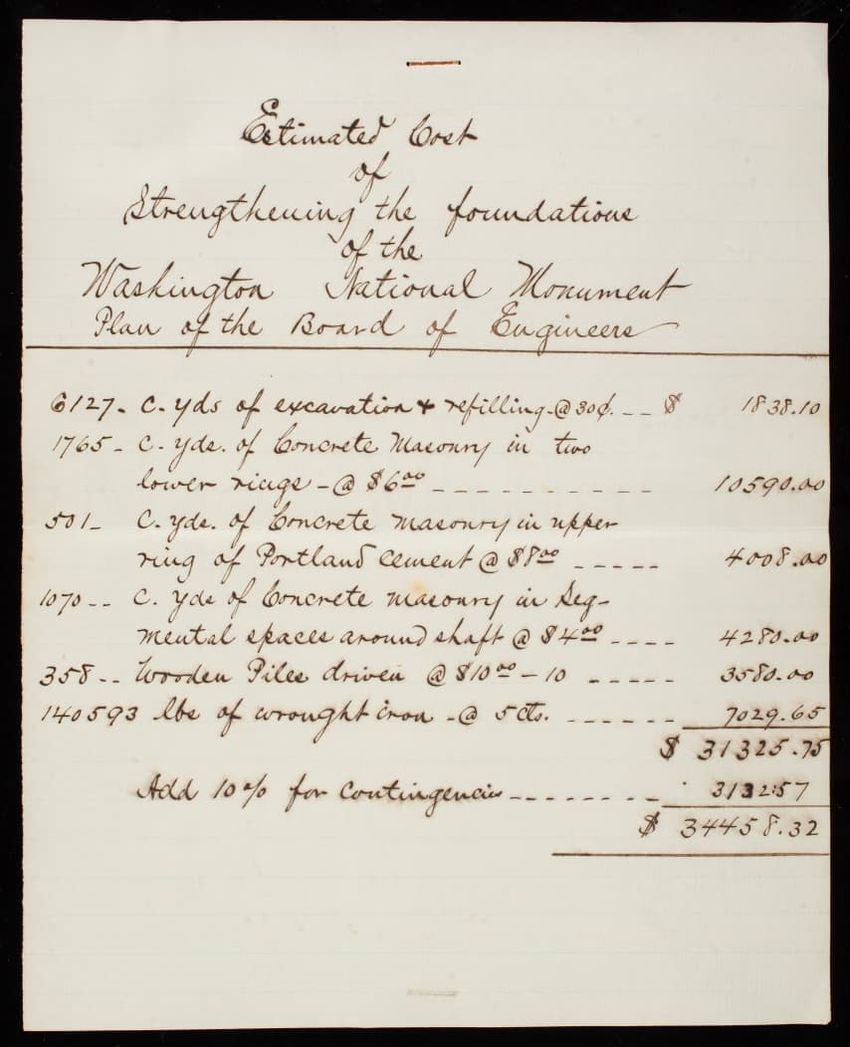 Estimated Cost
of
Strengthening the foundations
of the
Washington National Monument
Plan of the Board of Engineers
6127- C. yds of excavation & refilling - @ 30¢. -- $ 1838.10
1765- C. yds. of Concrete Masonry in two
lower rings - @ $6.00 ----------- 10590.00
501- C. yds. of Concrete masonry in upper
ring of Portland cement @ $8.00 ----- 4008.00
1070-- C. yds of Concrete masonry in Seg-
mental spaces around shaft @ $4.00 ---- 4280.00
358-- Wooden Piles driven @ $10.00 - 10 ----- 3580.00
140593 lbs of wrought iron - @ 5 cts. ------ 7029.65
$ 31325.75
Add 10% for contingencies -------- 3132.57
$ 34458.32